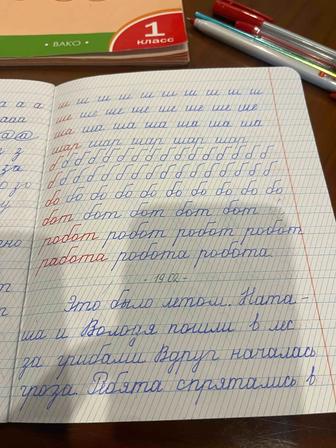 1
КЛАСС
• ВАКО •
ш ш ш ш ш ш ш ш ш ш ш
ше ше ше ше ше ше ше ше
ша ша ша ша ша ша ша
шар шар шар шар шар
б б б б б б б б б б б б б б б
б б б б б б б б б б б б б б б
бо бо бо бо бо бо бо бо бо
бот бот бот бот бот
робот робот робот робот
работа работа работа
- 19.02 -
Это было летом. Ната-
ша и Володя пошли в лес
за грибами Вдруг началась
гроза. Ребята спрятались в